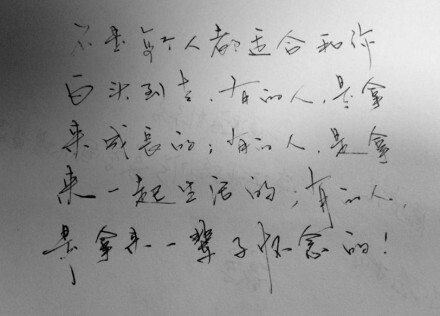 不是每个人都适合和你
白头到老，有的人，是拿
来成长的；有的人，是拿
来一起生活的，有的人，
是拿来一辈子怀念的！